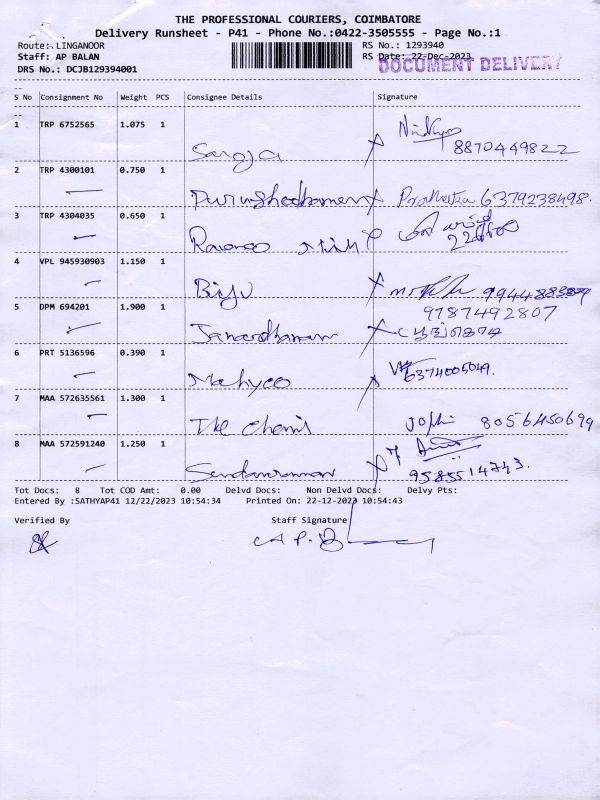 THE PROFESSIONAL COURIERS, COIMBATORE
Delivery Runsheet - P41 - Phone No.:0422-3505555 - Page No.:1
Route: LINGANOOR RS No.: 1293940
Staff: AP BALAN RS Date: 22-Dec-2023
DOCUMENT DELIVERY
DRS No.: DCJB129394001
S No Consignment No Weight PCS Consignee Details Signature
1 TRP 6752565 1.075 1
Saroja 8870449822
2 TRP 4300101 0.750 1
Purushothaman 6379238498
3 TRP 4304035 0.650 1
4 VPL 945930903 1.150 1
Biju
5 DPM 694201 1.900 1 9787492807
Janardhanan
6 PRT 5136596 0.390 1
Mahyco 6374005049.
7 MAA 572635561 1.300 1
The Chennis 8056450699
8 MAA 572591240 1.250 1
9585514743.
Tot Docs: 8 Tot COD Amt: 0.00 Delvd Docs: Non Delvd Docs: Delvy Pts:
Entered By :SATHYAP41 12/22/2023 10:54:34 Printed On: 22-12-2023 10:54:43
Verified By Staff Signature